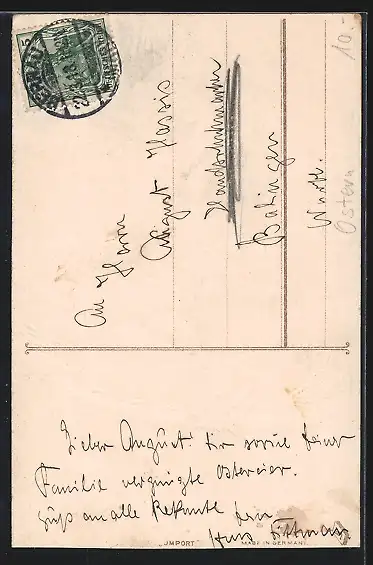 An Herrn
August Hassis
Balingen
Württ.
Ostern
10.-
5
Lieber August! Dir sowie deiner
Familie vergnügte Ostereier.
Gruß an alle Bekannte dein
Hans
„JMPORT"
MADE IN GERMANY